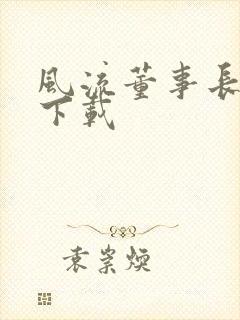 風流董事長
下載
袁崇煥